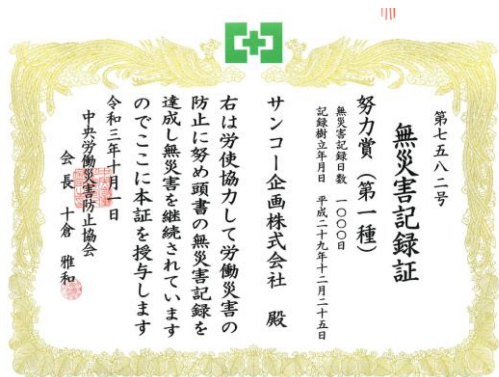 第七五八二号
無災害記録証
努力賞（第一種）
無災害記録日数　一〇〇〇日
記録樹立年月日　平成二十九年十二月二十五日
サンコー企画株式会社　殿
右は労使協力して労働災害の
防止に努め頭書の無災害記録を
達成し無災害を継続されています
のでここに本証を授与します
令和三年十月一日
中央労働災害防止協会
会長　十倉　雅和